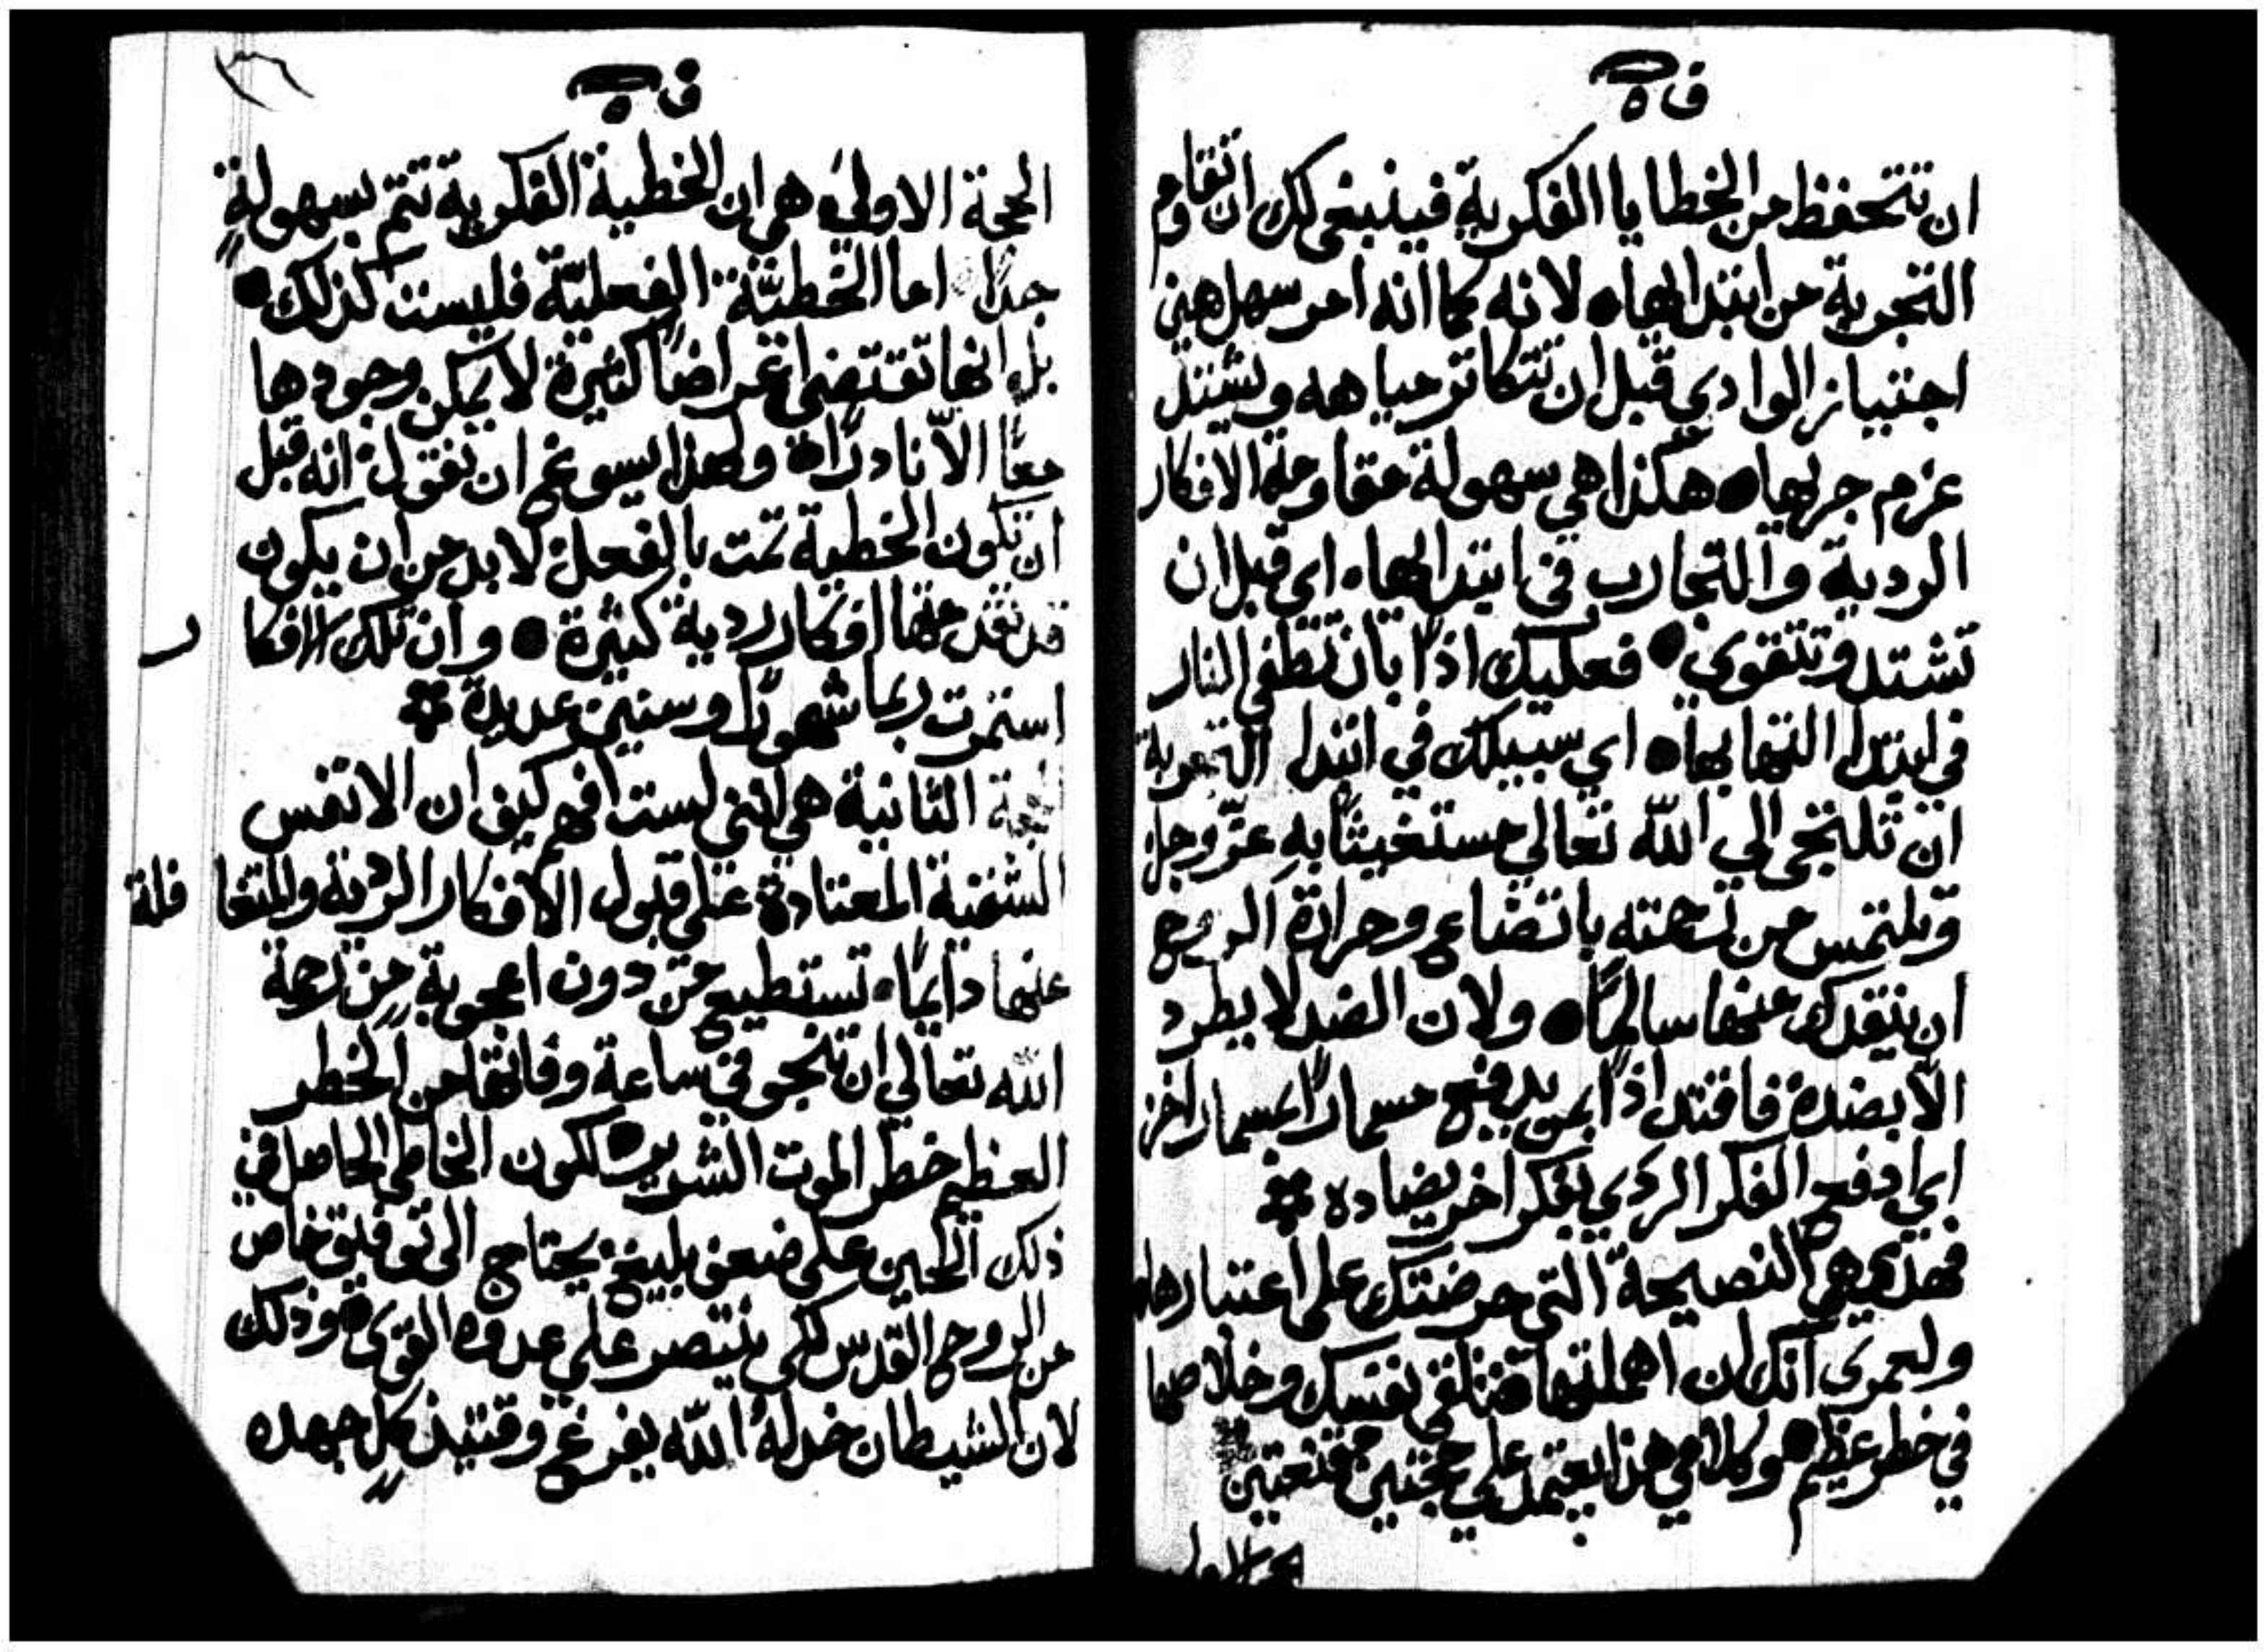 ف ٥
ان تتحفظ من الخطايا الفكرية فينبغي لك ان تقاوم
التجربة من ابتدايها ٠ لانه كما انه امر سهل هين
اجتياز الوادي قبل ان تتكاثر مياهه ويشتد
عزم جريها ٠ هكذا هي سهولة مقاومة الافكار
الردية والتجارب في ابتدايها ٠ اي قبل ان
تشتد وتتقوي ٠ فعليك اذًا بان تطفي النار
في ابتدا التهابها ٠ اي سبيلك في ابتدا التجربة
ان تلتجي الي اللّه تعالي مستغيثًا به عزّ وجل
وتلتمس من نعمته باتضاع وحرارة الروح
ان ينقدك منها سالمًا ٠ ولان الضد لا يطرد
الّا بضده فاقتد اذًا بمن يدفع مسمارًا بمسمار اخر
اي ادفع الفكر الردي بفكر اخر يضاده
فهذه هي النصيحة التي حرضتك علي اعتبارها
ولعمري انك ان اهملتها فتلقي نفسك وخلاصها
في خطر عظيم ٠ وكلامي هذا يعتمد علي حجتين مقنعتين
الحجة الاولي
ف ٥
الحجة الاولي هي ان الخطية الفكرية تتم بسهولةٍ
جدًا اما الخطيّة الفعليّة فليست كذلك ٠
بل انها تقتضي اغراضًا كثيرة لا يمكن وجودها
معًا الّا نادرًا ٠ ولهذا يسوغ ان نقول انه قبل
ان تكون الخطية تمت بالفعل لا بد من ان يكون
قد تقدمها افكار ردية كثيرة ٠ وان تلك الافكا ر
استمرت ربما شهورًا وسنين عديدة
الحجة الثانية هي انني لست افهم كيف ان الانفس
الشقية المعتادة علي قبول الافكار الردية والمتغا فلة
عنها دايمًا ٠ تستطيع من دون اعجوبةٍ من رحمة
اللّه تعالي ان تنجو في ساعة وفاتها من الخطر
العظيم خطر الموت الشرير ٠ لكون الخاطي الحاصل في
ذلك الحين علي ضعف بليغ يحتاج الي توفيق خاص
من الروح القدس لكي ينتصر علي عدوه القوي ٠ وذلك
لان الشيطان خذلهُ اللّه يفرغ وقتيذ كلِ جهده